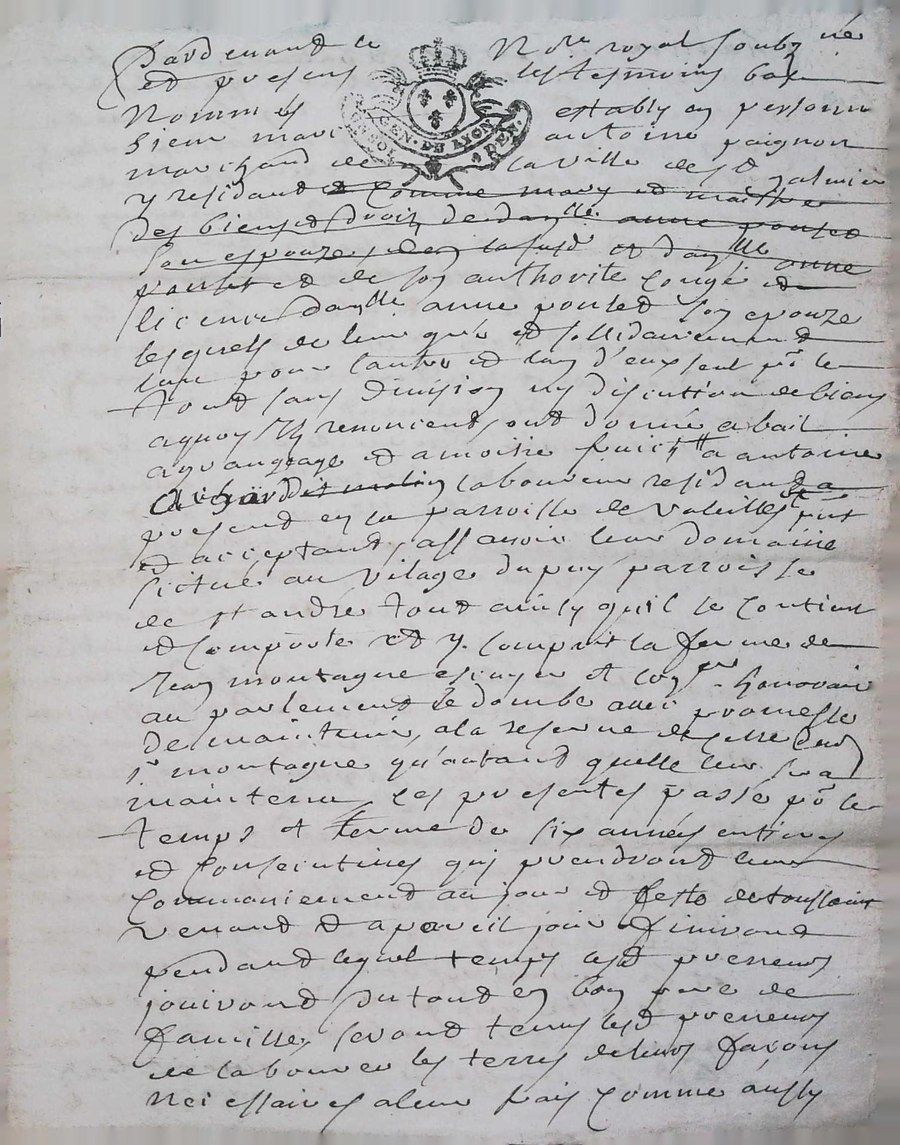 Pardevand le Nore royal soubzné
et presens les tesmoins bas
Nommés estably en personne
GEN. DE LYON
UN SOL DEN.
Sieur marc antoine paignon
marchand de la ville de st galmier
y residant et comme mary et maitre
des biens et droits de daylle anne poulet
son espouze, et daylle anne
poulet et de son authorité congé et
licence daylle anne poulet son epouze
lesquels de leur gré et sollidairement
lun pour lautre et lun d'eux seul pr le
tout sans division ny discution de biens
aquoy ils renoncient, ont donné a bail
a grangeage et a moitié fruicts a antoine
laboureur residant
present en la parroisse de valeille prnt
et acceptant, assavoir leur domaine
situé au vilage dupuy parroisse
de st andré tout ainsy quil se contient
et compose et y compris la ferme de
Jean montagne escuyer et honorair
au parlement de dombe avec promesse
de maintenir, a la reserve de
sr montagne qu'autant quelle leur sera
maintenu, les presentes passé pr le
temps et terme de six années entieres
et consecutives qui prendront leur
commancement au jour et feste de toussaint
venant et a pareil jour finiront
pendant lequel temps lesd preneurs
jouiront du tout en bon pere de
famille, seront tenus lesd preneurs
de labourer les terres de leurs façons
necessaires a leur frais comme aussy